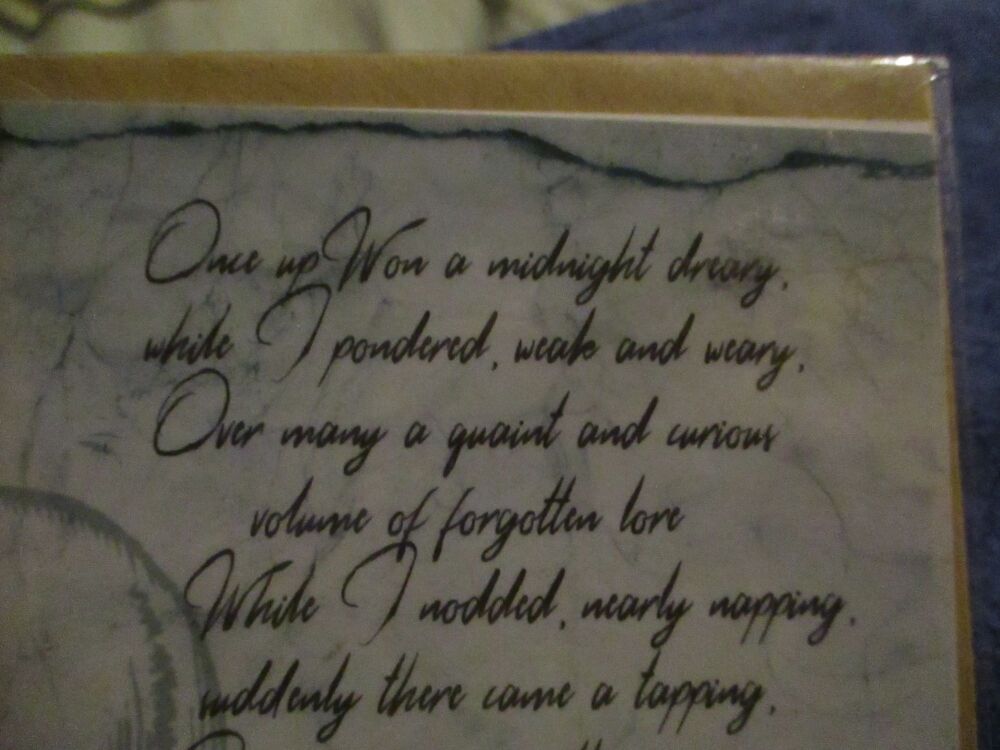 Once upWon a midnight dreary,
while I pondered, weak and weary,
Over many a quaint and curious
volume of forgotten lore
While I nodded, nearly napping,
suddenly there came a tapping,